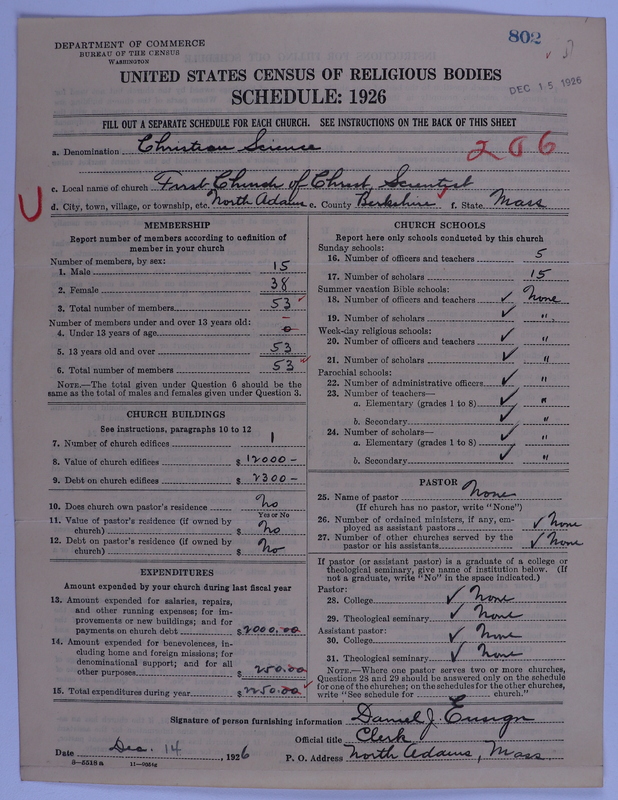 802
DEPARTMENT OF COMMERCE
BUREAU OF THE CENSUS
WASHINGTON
DEC 15 1926
UNITED STATES CENSUS OF RELIGIOUS BODIES
SCHEDULE: 1926
FILL OUT A SEPARATE SCHEDULE FOR EACH CHURCH. SEE INSTRUCTIONS ON THE BACK OF THIS SHEET
a. Denomination Christian Science
206
c. Local name of church First Church of Christ, Scientist
U
d. City, town, village, or township, etc. North Adams e. County Berkshire f. State Mass
MEMBERSHIP
Report number of members according to definition of
member in your church
Number of members, by sex:
1. Male 15
2. Female 38
3. Total number of members 53
Number of members under and over 13 years old:
4. Under 13 years of age 0
5. 13 years old and over 53
6. Total number of members 53
NOTE.—The total given under Question 6 should be
same as the total of males and females given under Question 3.
CHURCH BUILDINGS
See instructions, paragraphs 10 to 12
7. Number of church edifices 1
8. Value of church edifices $ 12000-
9. Debt on church edifices $ 2300-
10. Does church own pastor's residence No
Yes or No
11. Value of pastor's residence (if owned by
church) $ No
12. Debt on pastor's residence (if owned by
church) $ No
EXPENDITURES
Amount expended by your church during last fiscal year
13. Amount expended for salaries, repairs,
and other running expenses; for im-
provements or new buildings; and for
payments on church debt $ 2000.00
14. Amount expended for benevolences, in-
cluding home and foreign missions; for
denominational support; and for all
other purposes 250.00
15. Total expenditures during year $ 2250.00
CHURCH SCHOOLS
Report here only schools conducted by this church
Sunday schools:
16. Number of officers and teachers 5
17. Number of scholars 15
Summer vacation Bible schools:
18. Number of officers and teachers ✓ None
19. Number of scholars ✓ "
Week-day religious schools:
20. Number of officers and teachers ✓ "
21. Number of scholars ✓ "
Parochial schools:
22. Number of administrative officers ✓ "
23. Number of teachers—
a. Elementary (grades 1 to 8) ✓ "
b. Secondary ✓ "
24. Number of scholars—
a. Elementary (grades 1 to 8) ✓ "
b. Secondary ✓ "
PASTOR
25. Name of pastor None
(If church has no pastor, write "None")
26. Number of ordained ministers, if any, em-
ployed as assistant pastors ✓ None
27. Number of other churches served by the
pastor or his assistants ✓ None
If pastor (or assistant pastor) is a graduate of a college or
theological seminary, give name of institution below. (If
not a graduate, write "No" in the space indicated.)
Pastor:
28. College ✓ None
29. Theological seminary ✓ None
Assistant pastor:
30. College ✓ None
31. Theological seminary ✓ None
NOTE.—Where one pastor serves two or more churches,
Questions 28 and 29 should be answered only on the schedule
for one of the churches; on the schedules for the other churches,
write "See schedule for church."
Signature of person furnishing information Daniel J. Ensign
Official title Clerk
Date Dec. 14, 1926 P. O. Address North Adams, Mass